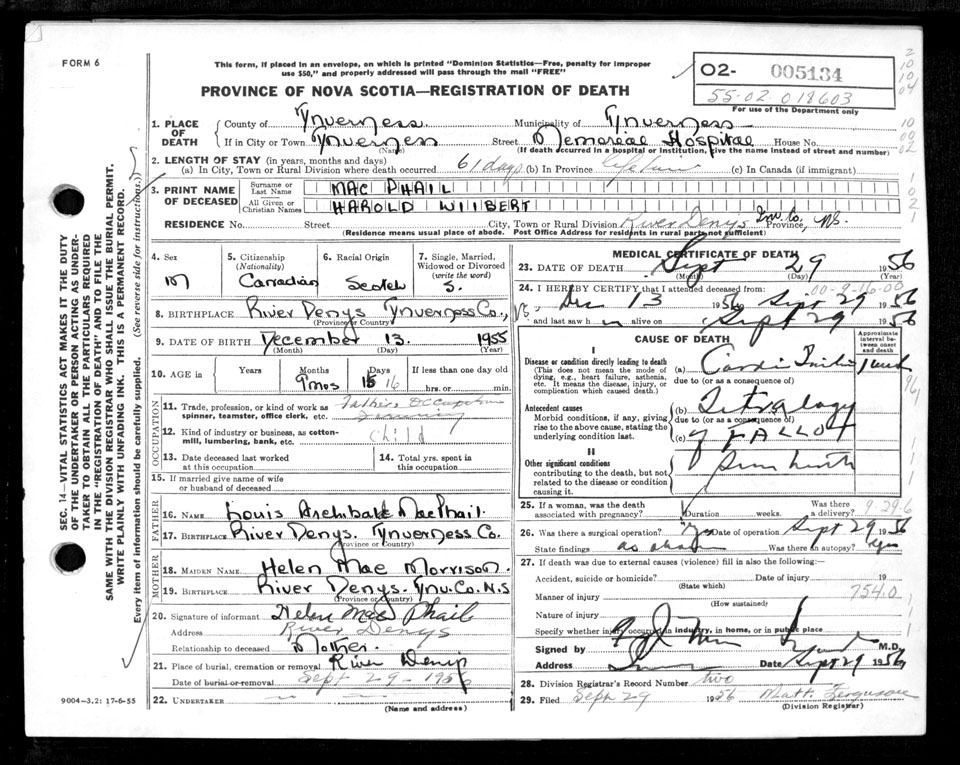 FORM 6
This form, if placed in an envelope, on which is printed "Dominion Statistics—Free, penalty for improper
use $50," and properly addressed will pass through the mail "FREE"
O2- 005134
55-02-018603
For use of the Department only
PROVINCE OF NOVA SCOTIA—REGISTRATION OF DEATH
1. PLACE OF DEATH
County of Ynverness Municipality of Ynverness
If in City or Town Ynverness Street Memorial Hospital House No.
(Name) (If death occurred in a hospital or institution, give the name instead of street and number)
2. LENGTH OF STAY (in years, months and days)
(a) In City, Town or Rural Division where death occurred 61 days (b) In Province (c) In Canada (if immigrant)
3. PRINT NAME OF DECEASED
Surname or Last Name MAC PHAIL
All Given or Christian Names HAROLD WILBERT
RESIDENCE No. Street City, Town or Rural Division River Denys Inv. Co. Province, NS.
(Residence means usual place of abode. Post Office Address for residents in rural parts not sufficient)
4. Sex M
5. Citizenship (Nationality) Canadian
6. Racial Origin Scotch
7. Single, Married, Widowed or Divorced (write the word) S.
8. BIRTHPLACE River Denys Ynverness Co., NS.
(Province or Country)
9. DATE OF BIRTH December 13. 1955
(Month) (Day) (Year)
10. AGE in Years Months Days If less than one day old
9 mos 15 16 hrs. or min.
OCCUPATION
11. Trade, profession, or kind of work as spinner, teamster, office clerk, etc. Father's Occupation Farming
12. Kind of industry or business, as cotton-mill, lumbering, bank, etc. Child
13. Date deceased last worked at this occupation
14. Total yrs. spent in this occupation
15. If married give name of wife or husband of deceased
FATHER
16. NAME Louis Archibald MacPhail.
17. BIRTHPLACE River Denys. Ynverness Co.
(Province or Country)
MOTHER
18. MAIDEN NAME Helen Mae Morrison.
19. BIRTHPLACE River Denys. Ynv. Co. N.S
(Province or Country)
20. Signature of informant Helen Mac Phail
Address River Denys
Relationship to deceased Mother.
21. Place of burial, cremation or removal River Denys
Date of burial or removal Sept 29-1956
22. UNDERTAKER
(Name and address)
MEDICAL CERTIFICATE OF DEATH
23. DATE OF DEATH Sept 29 1956
(Month) (Day) (Year)
24. I HEREBY CERTIFY that I attended deceased from: 00-9-16-00
Dec 13 1956 Sept 29 1956
and last saw h m alive on Sept 29 1956
CAUSE OF DEATH
Approximate interval between onset and death
I
Disease or condition directly leading to death
(This does not mean the mode of dying, e.g., heart failure, asthenia, etc. It means the disease, injury, or complication which caused death.)
(a) Cardiac Failure 1 week
due to (or as a consequence of)
Antecedent causes
Morbid conditions, if any, giving rise to the above cause, stating the underlying condition last.
(b) Tetralogy
due to (or as a consequence of)
(c) of FALLOT
II
Other significant conditions contributing to the death, but not related to the disease or condition causing it.
Since birth
25. If a woman, was the death associated with pregnancy? Duration weeks. Was there a delivery? 9-29-6
26. Was there a surgical operation? Yes Date of operation Sept 29 1956
State findings as above Was there an autopsy? Yes
27. If death was due to external causes (violence) fill in also the following:—
Accident, suicide or homicide? Date of injury 19
(State which)
Manner of injury 754.0
(How sustained)
Nature of injury
Specify whether injury occurred in industry, in home, or in public place
Signed by M.D.
Address Date Sept 29 1956
28. Division Registrar's Record Number two
29. Filed Sept 29 1956 Matt. Ferguson
(Division Registrar)
SEC. 14—VITAL STATISTICS ACT MAKES IT THE DUTY
OF THE UNDERTAKER OR PERSON ACTING AS UNDER-
TAKER TO OBTAIN ALL THE PARTICULARS REQUIRED
IN THE "REGISTRATION OF DEATH" AND TO FILE THE
SAME WITH THE DIVISION REGISTRAR WHO SHALL ISSUE THE BURIAL PERMIT.
WRITE PLAINLY WITH UNFADING INK. THIS IS A PERMANENT RECORD.
Every item of information should be carefully supplied. (See reverse side for instructions.)
9004-3.2: 17-6-55